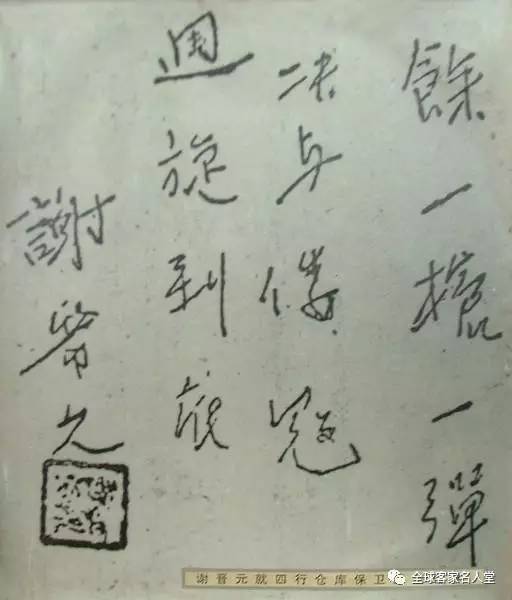 餘一槍一彈
决与倭寇
週旋到底
謝晋元
谢晋元就四行仓库保卫
全球客家名人堂